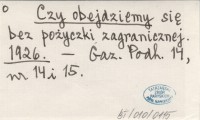 Czy obejdziemy się
bez pożyczki zagranicznej.
1926. — Gaz. Podh. 14,
nr 14 i 15.